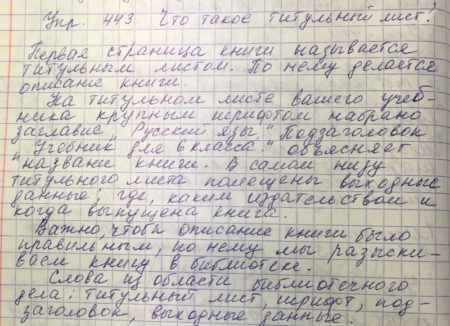 Упр. 443 Что такое титульный лист?
Первая страница книги называется
титульным листом. По нему делается
описание книги.
На титульном листе вашего учеб-
ника крупным шрифтом набрано
заглавие „Русский язы." Подзаголовок
"Учебник для 6 класса." объясняет
названи книги. В самом низу
титульного листа помещены выходные
данные; где, каким издательством и
когда выпущена книга.
Важно, чтобы описание книги было
правильным, по нему мы разыски-
ваем книгу в библиотеке.
Слова из области библиотечного
дела: титульный лист, шрифт, под-
заголовок, выходные данные.